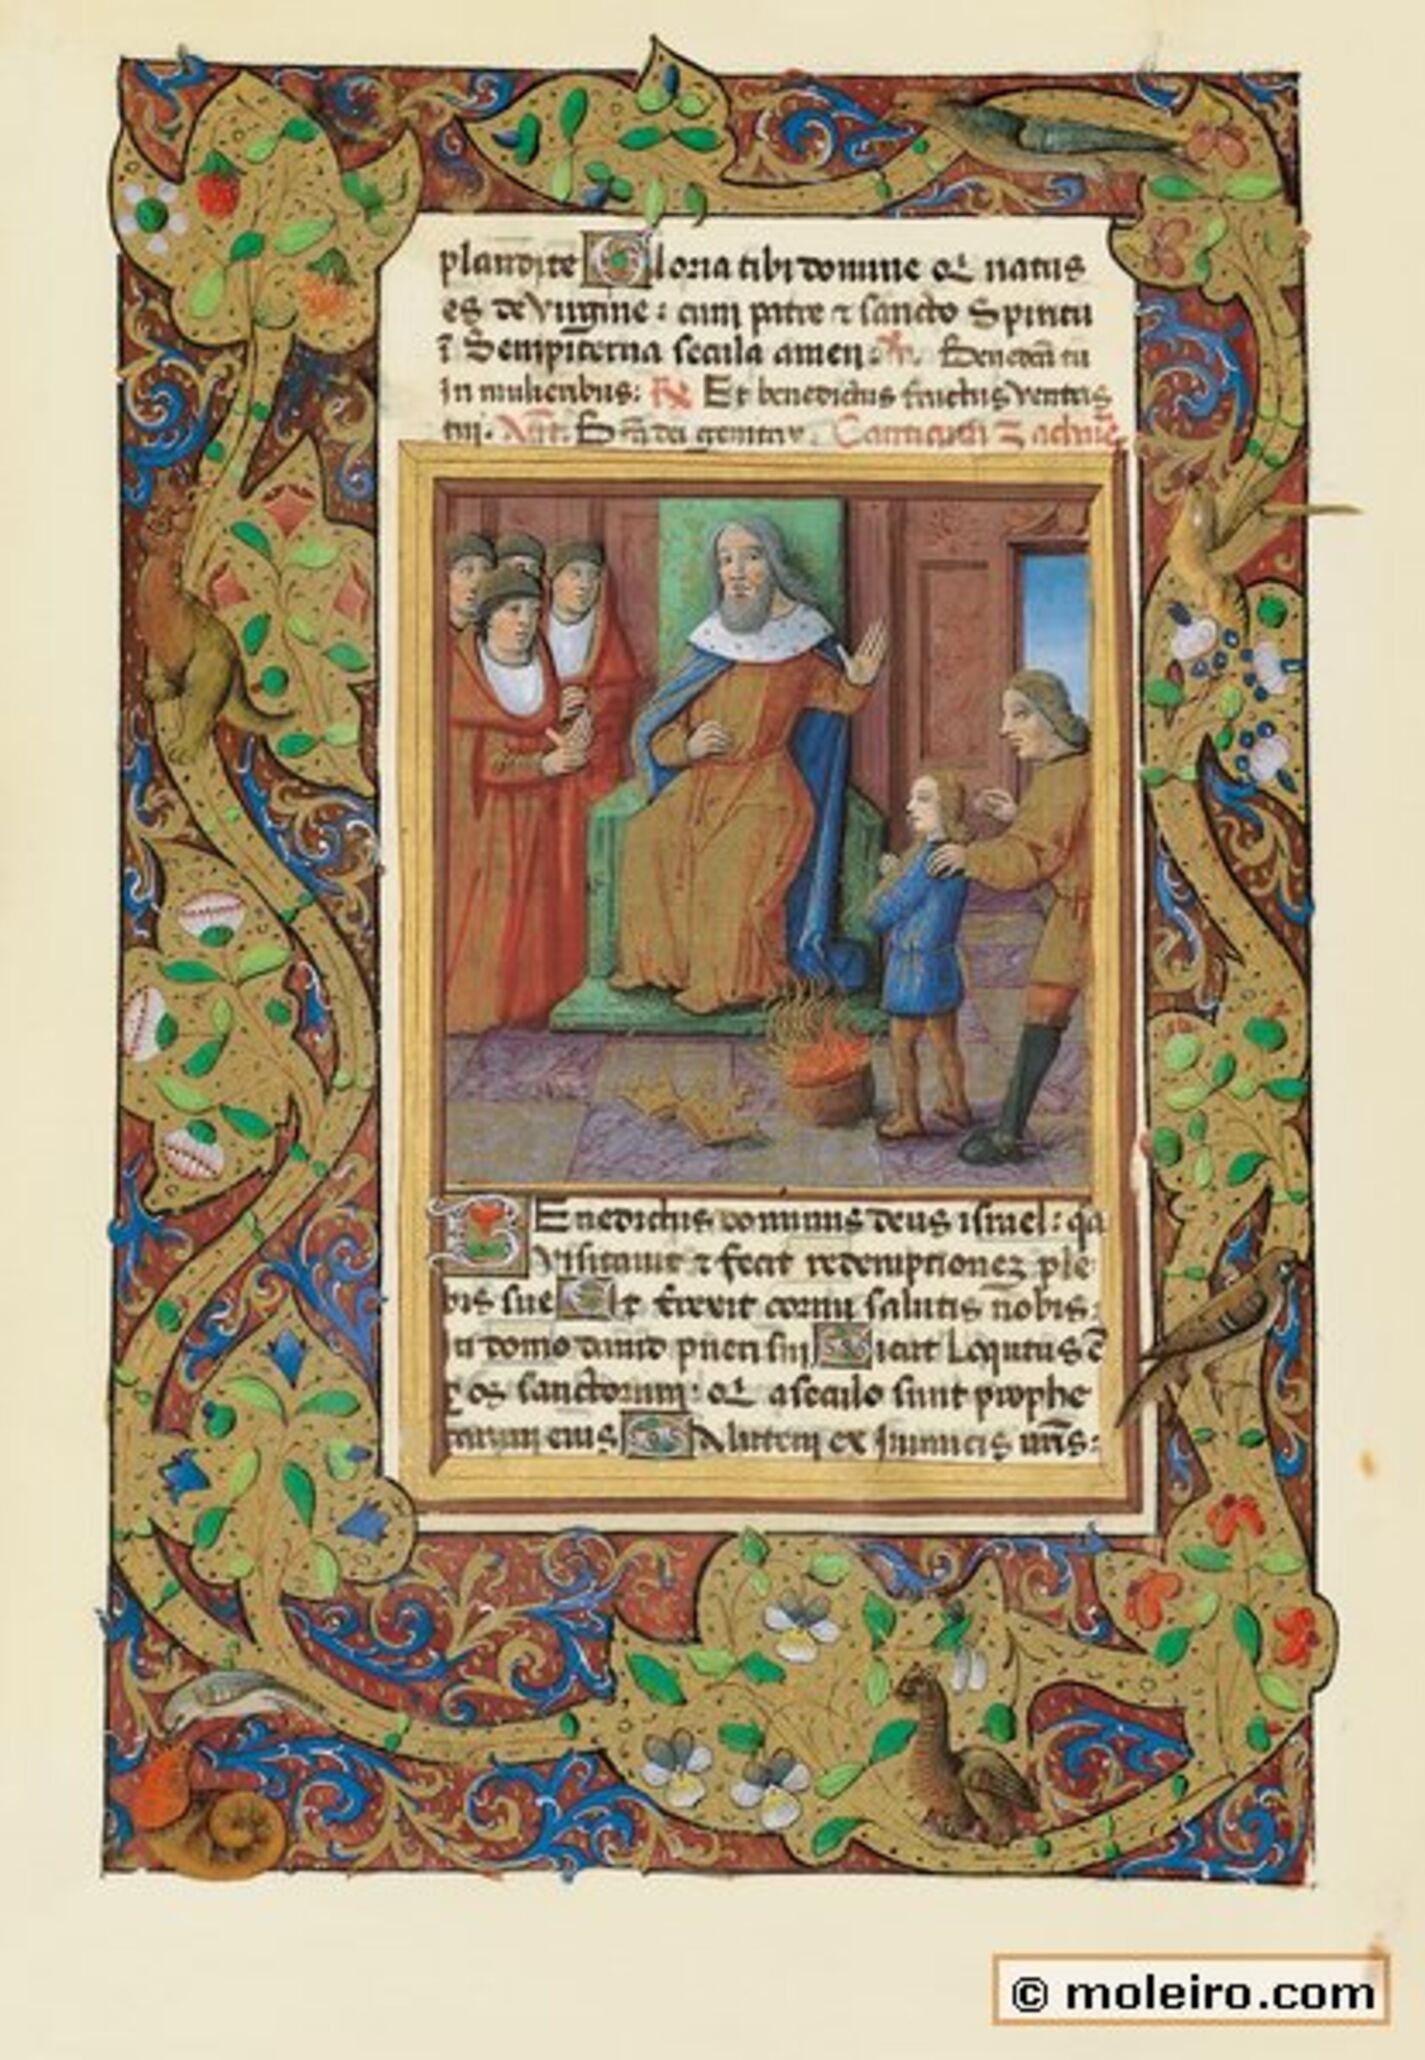 plaudite Gloria tibi domine q natus
es de virgine : cum patre ⁊ sancto Spiritu
ī Sempiterna secula amen : Benedcā tu
in mulieribus : R Et benedictus fructus ventris
tui . dei genitrix . Canticum zacharie
Benedictus dominus deus israel : qa
visitavit ⁊ fecit redemptionez ple
bis sue Et erexit cornu salutis nobis :
In domo david pueri sui Sicut Loqutus ē
p os sanctorum : q a seculo sunt prophe
tarum eius Salutem ex inimicis nris :
© moleiro.com